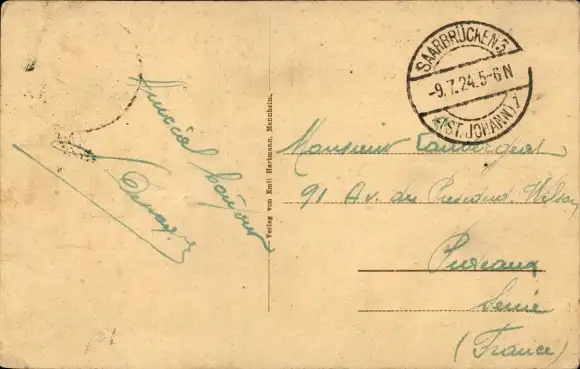 Amical bonjour
Verlag von Emil Hartmann, Mannheim.
SAARBRÜCKEN 3
-9.7.24.5-6N
*(ST. JOHANN) f
Monsieur Lauvergeat
91 Av. du Président Wilson
Puteaux
Seine
(France)